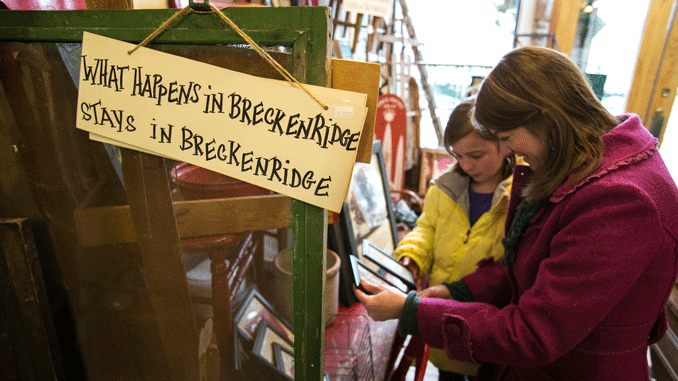 WHAT HAPPENS IN BRECKENRIDGE
STAYS IN BRECKENRIDGE